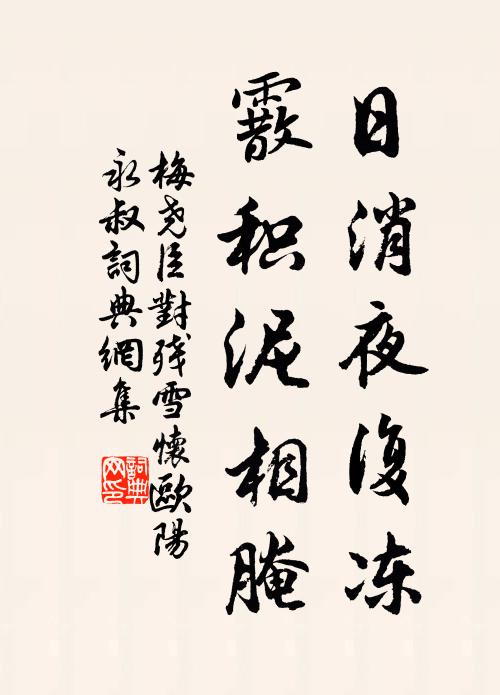 日消夜復冻
霰积泥相腌
梅尧臣對残雪懷歐陽
永叔詞典網集
詞典
网印